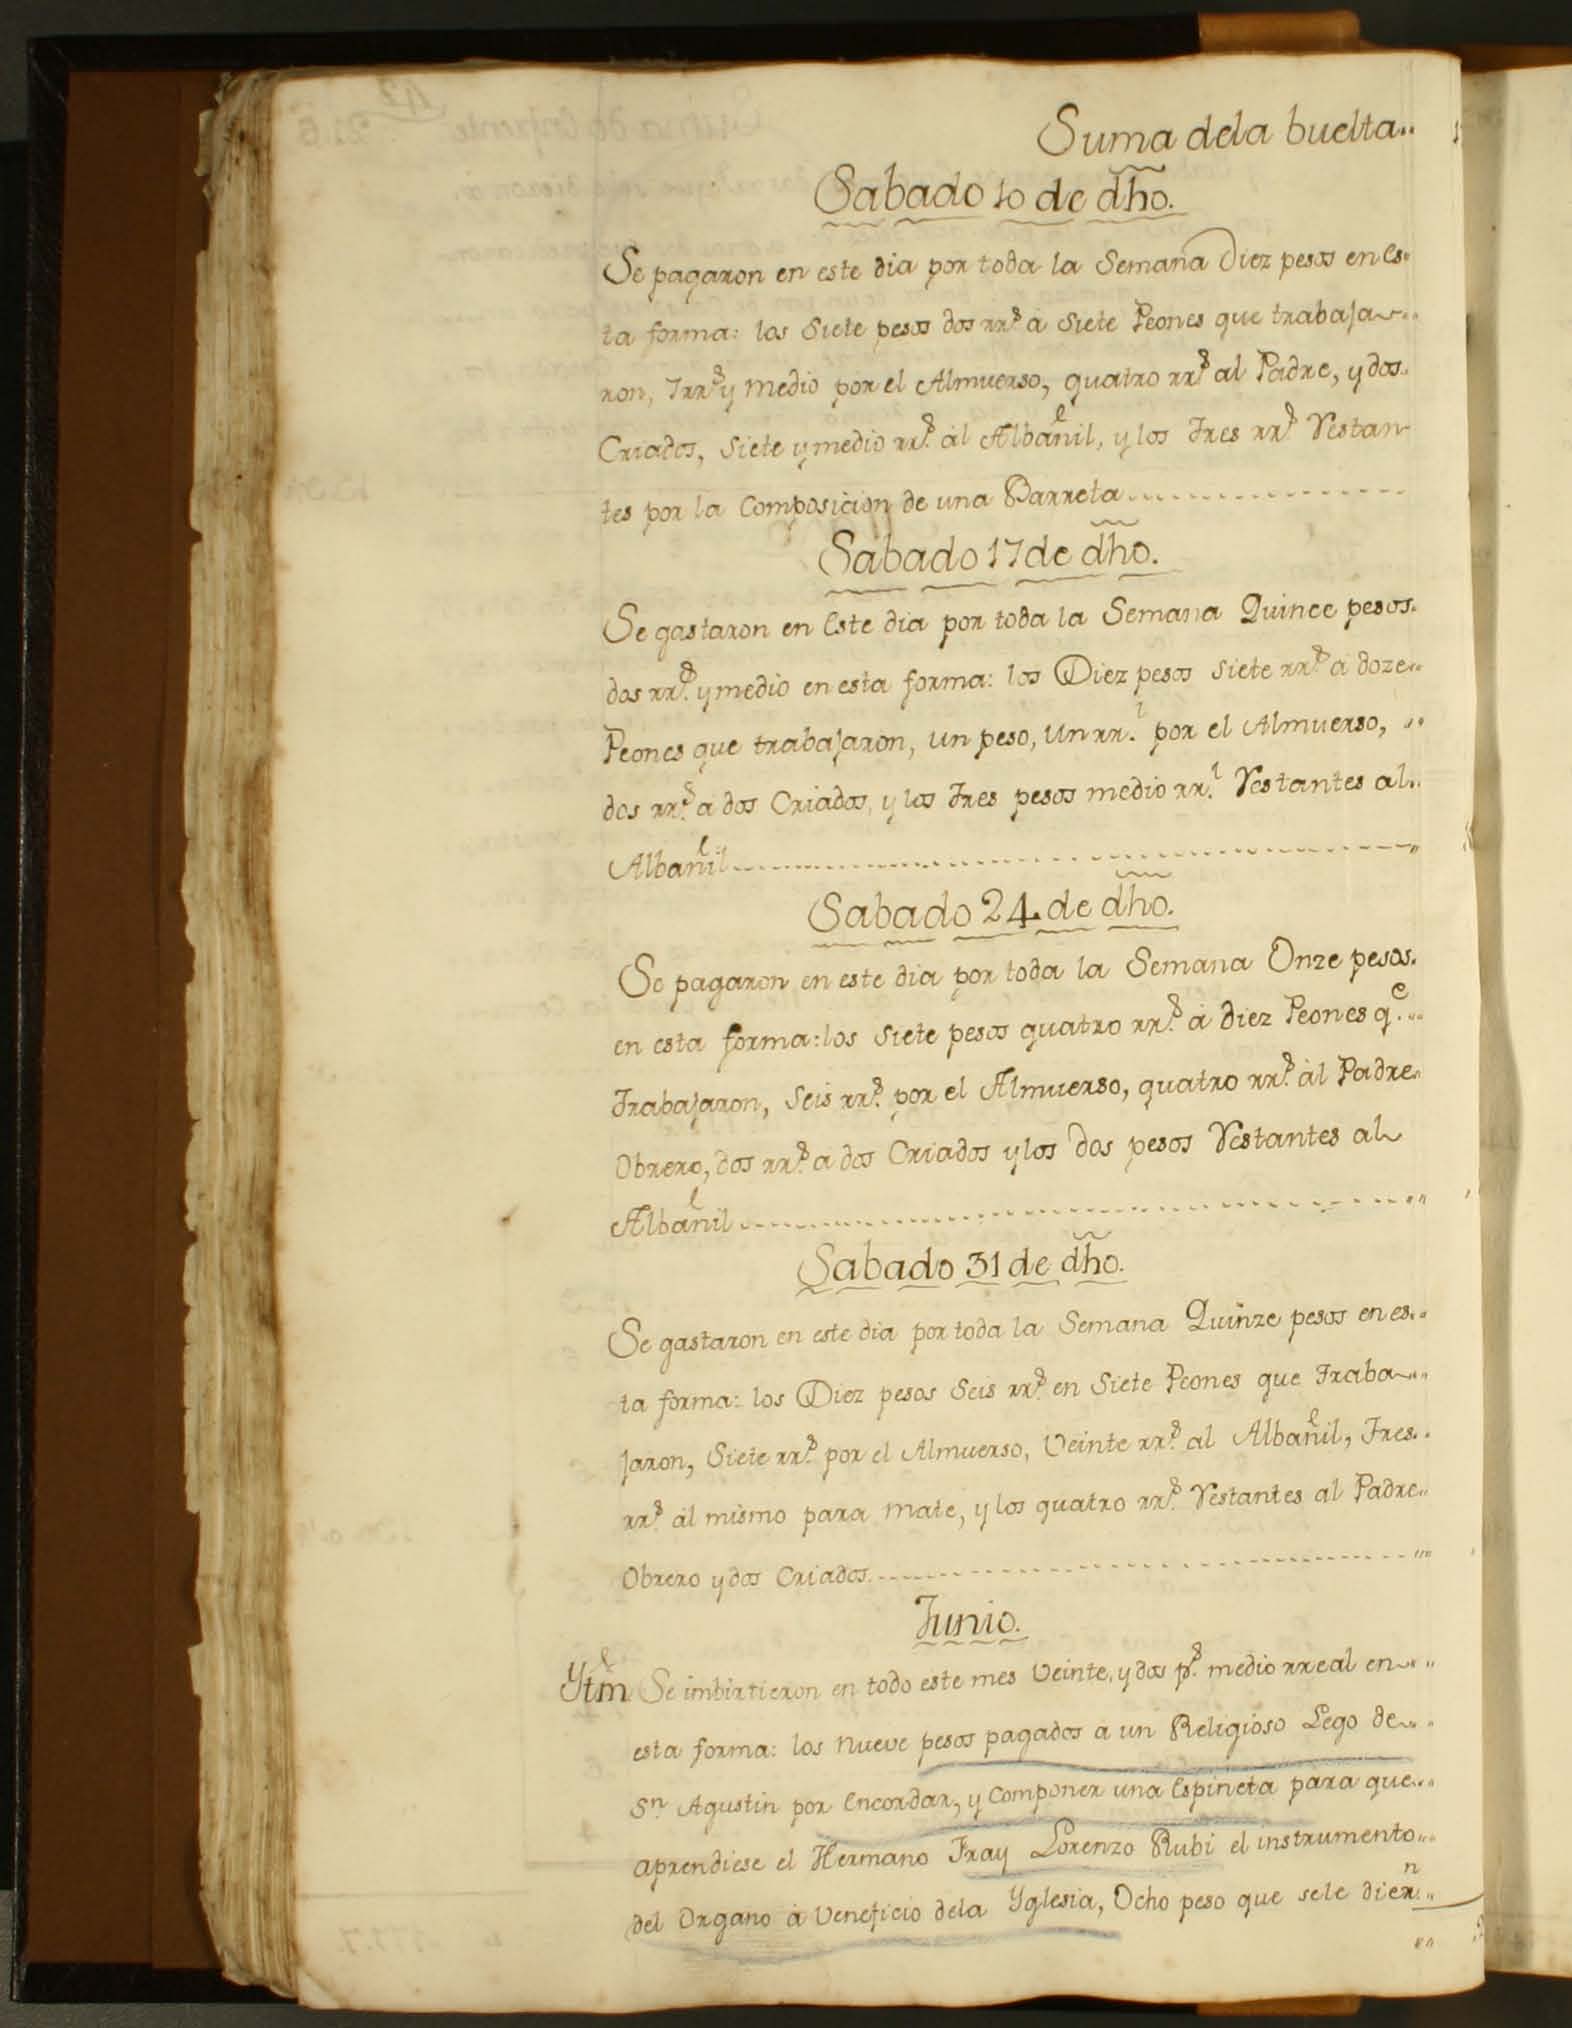 Suma dela buelta..
Sabado 10 de dho.
Se pagaron en este dia por toda la Semana Diez pesos en es-
ta forma: los Siete pesos dos rr.s à Siete Peones que trabaja-
ron, 7 rr.s y medio por el Almuerso, quatro rr.s al Padre, y dos
Criados, Siete y medio rr.s àl Albañil, y los Tres rr.s Restan-
tes por la Composicion de una Barreta
Sabado 17 de dho.
Se gastaron en Este dia por toda la Semana Quince pesos
dos rr.s y medio en esta forma: los Diez pesos Siete rr.s à doze
Peones que trabajaron, un peso, Un rr.l por el Almuerso,
dos rr.s a dos Criados, y los Tres pesos medio rr.l Restantes al
Albañil
Sabado 24. de dho.
Se pagaron en este dia por toda la Semana Onze pesos.
en esta forma: los Siete pesos quatro rr.s à diez Peones q.e
Trabajaron, Seis rr.s por el Almuerso, quatro rr.s àl Padre
Obrero, dos rr.s a dos Criados y los dos pesos Restantes al
Albañil
Sabado 31 de dho.
Se gastaron en este dia por toda la Semana Quinze pesos en es-
ta forma: los Diez pesos Seis rr.s en Siete Peones que Traba-
jaron, Siete rr.s por el Almuerso, Veinte rr.s al Albañil, Tres
rr.s àl mismo para mate, y los quatro rr.s Restantes al Padre
Obrero y dos Criados
Junio.
Ytm Se imbirtieron en todo este mes Veinte, y dos p.s medio rreal en
esta forma: los nueve pesos pagados à un Religioso Lego de
S.n Agustin por Encordar, y Componer una Espineta para que
aprendiese el Hermano Fray Lorenzo Rubi el instrumento
del Organo à Veneficio dela Yglesia, Ocho peso que sele diern